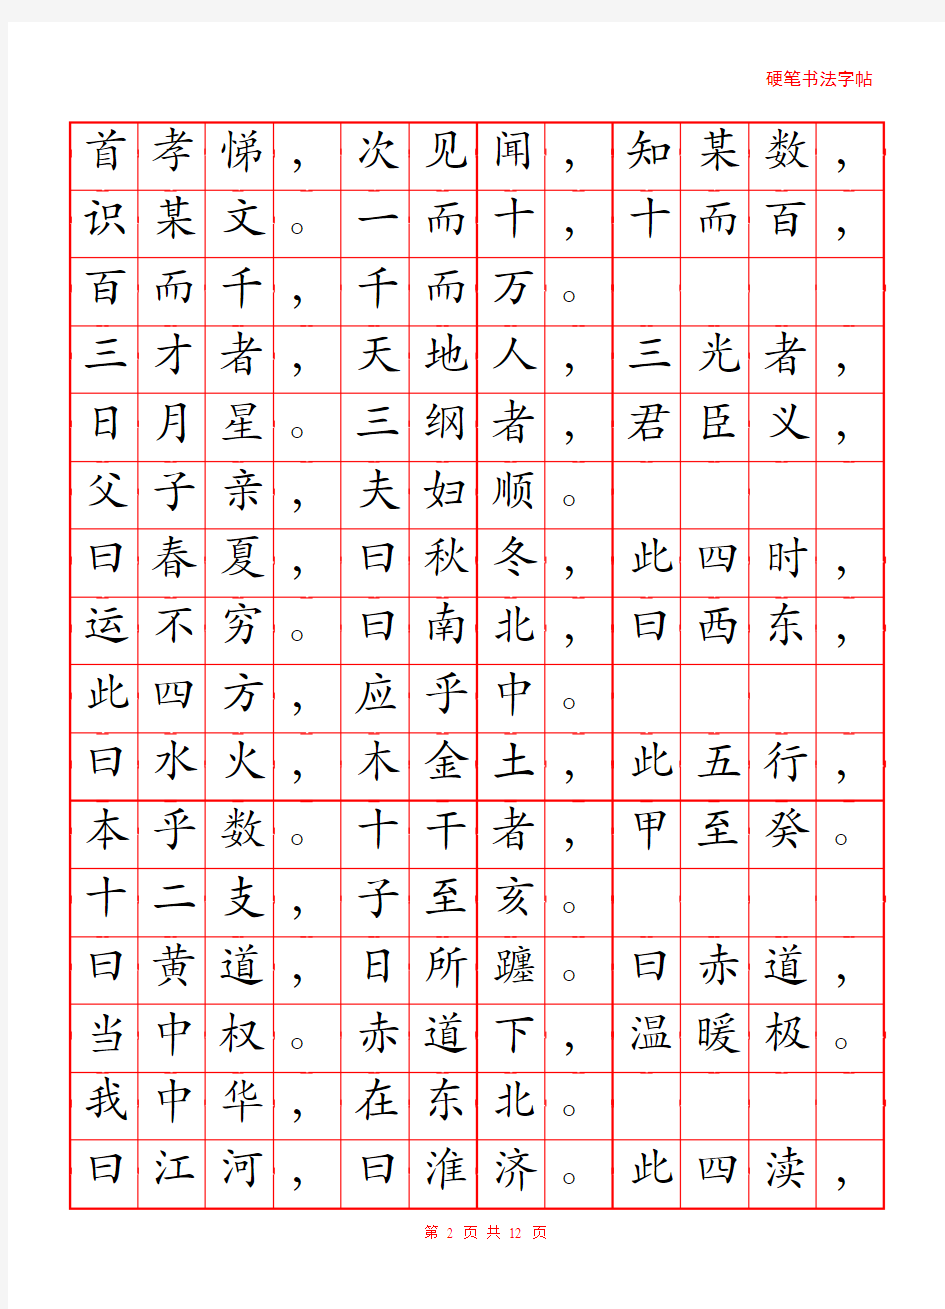 硬笔书法字帖
首孝悌，次见闻，知某数，
识某文。一而十，十而百，
百而千，千而万。
三才者，天地人，三光者，
日月星。三纲者，君臣义，
父子亲，夫妇顺。
曰春夏，曰秋冬，此四时，
运不穷。曰南北，曰西东，
此四方，应乎中。
曰水火，木金土，此五行，
本乎数。十干者，甲至癸。
十二支，子至亥。
曰黄道，日所躔。曰赤道，
当中权。赤道下，温暖极。
我中华，在东北。
曰江河，曰淮济。此四渎，
第 2 页 共 12 页